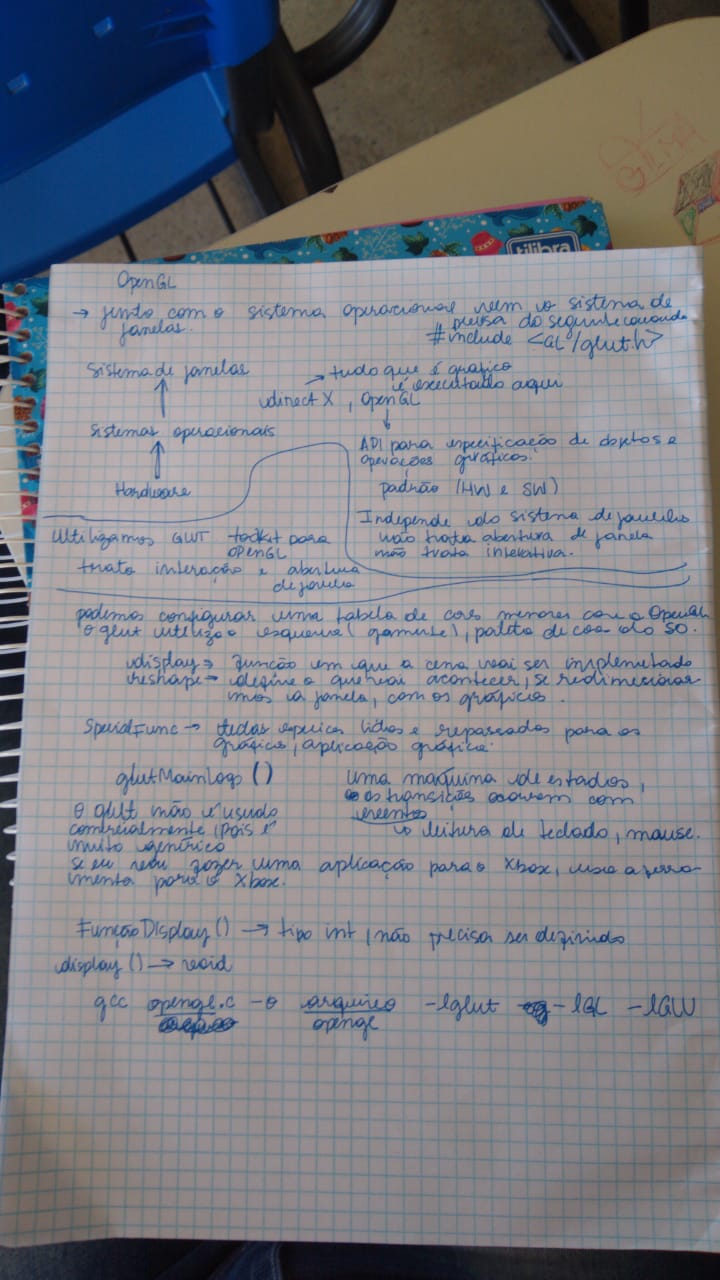 tilibra
OpenGL
→ junto com o sistema operacional vem o sistema de
janelas.
precisa do seguinte comando
#include <GL/glut.h>
Sistema de janelas
→ tudo que é gráfico
é executado aqui
directX, OpenGL
Sistemas operacionais
Hardware
API para especificação de objetos e
operações gráficas.
padrão (HW e SW)
Independe do sistema de janelas
não trata abertura de janela
não trata interativa.
Utilizamos GLUT toolkit para
OPENGL
trata interação e abertura
de janela
podemos configurar uma tabela de cores menores com o OpenGL
O glut utiliza o esquema (gamute), paleta de cor do SO.
display → função em que a cena vai ser implementado
reshape → define o que vai acontecer, se redimecionar
mos a janela, com os gráficos.
SpecialFunc → teclas especiais lidas e repassadas para os
gráficos, aplicação gráfica.
glutMainLoop ()
uma maquina de estados,
as transições ocorrem com
eventos
↳ leitura de teclado, mause.
O glut não é usado
comercialmente, pois é
muito genérico
se eu vou fazer uma aplicação para o Xbox, uso a ferra-
menta para o Xbox.
FunçãoDisplay () → tipo int, não precisa ser definido
display () → void
gcc opengl.c -o arquivo -lglut -lGL -lGLU
opengl